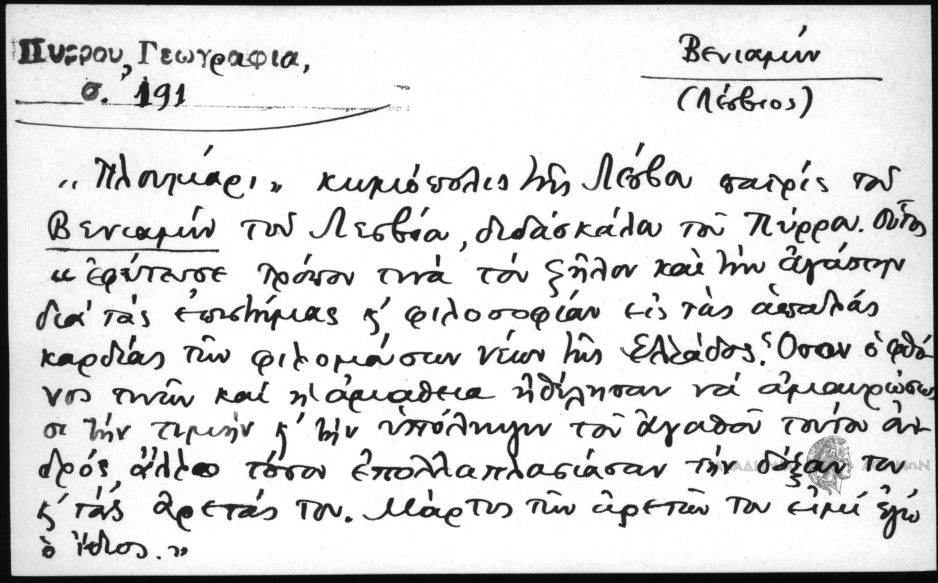 Πύρρου, Γεωγραφία,
σ. 191
Βενιαμίν
(Λέσβιος)
„Πλουμάρι" κωμόπολις τῆς Λέσβου πατρίς τοῦ
Βενιαμίν τοῦ Λεσβίου, διδάσκάλου τοῦ Πύρρου. Οὗτος
„ἐφύτευσε τρόπον τινά τόν ζῆλον καὶ τὴν ἀγάπην
διά τάς ἐπιστήμας κ' φιλοσοφίαν εἰς τάς ἁπαλάς
καρδίας τῶν φιλομούσων νέων τῆς Ἑλλάδος. Ὅσον ὁ φθό-
νος τινῶν καί ἡ ἀμάθεια ἠθέλησαν νά ἀμαυρώσω-
σι τήν τιμήν κ' τήν ὑπόληψιν τοῦ ἀγαθοῦ τούτου ἀν-
δρός ἄλλο τόσον ἐπολλαπλασίασαν τήν δόξαν του
κ' τάς ἀρετάς του. Μάρτυς τῶν ἀρετῶν του εἰμί ἐγώ
ὁ ἴδιος."